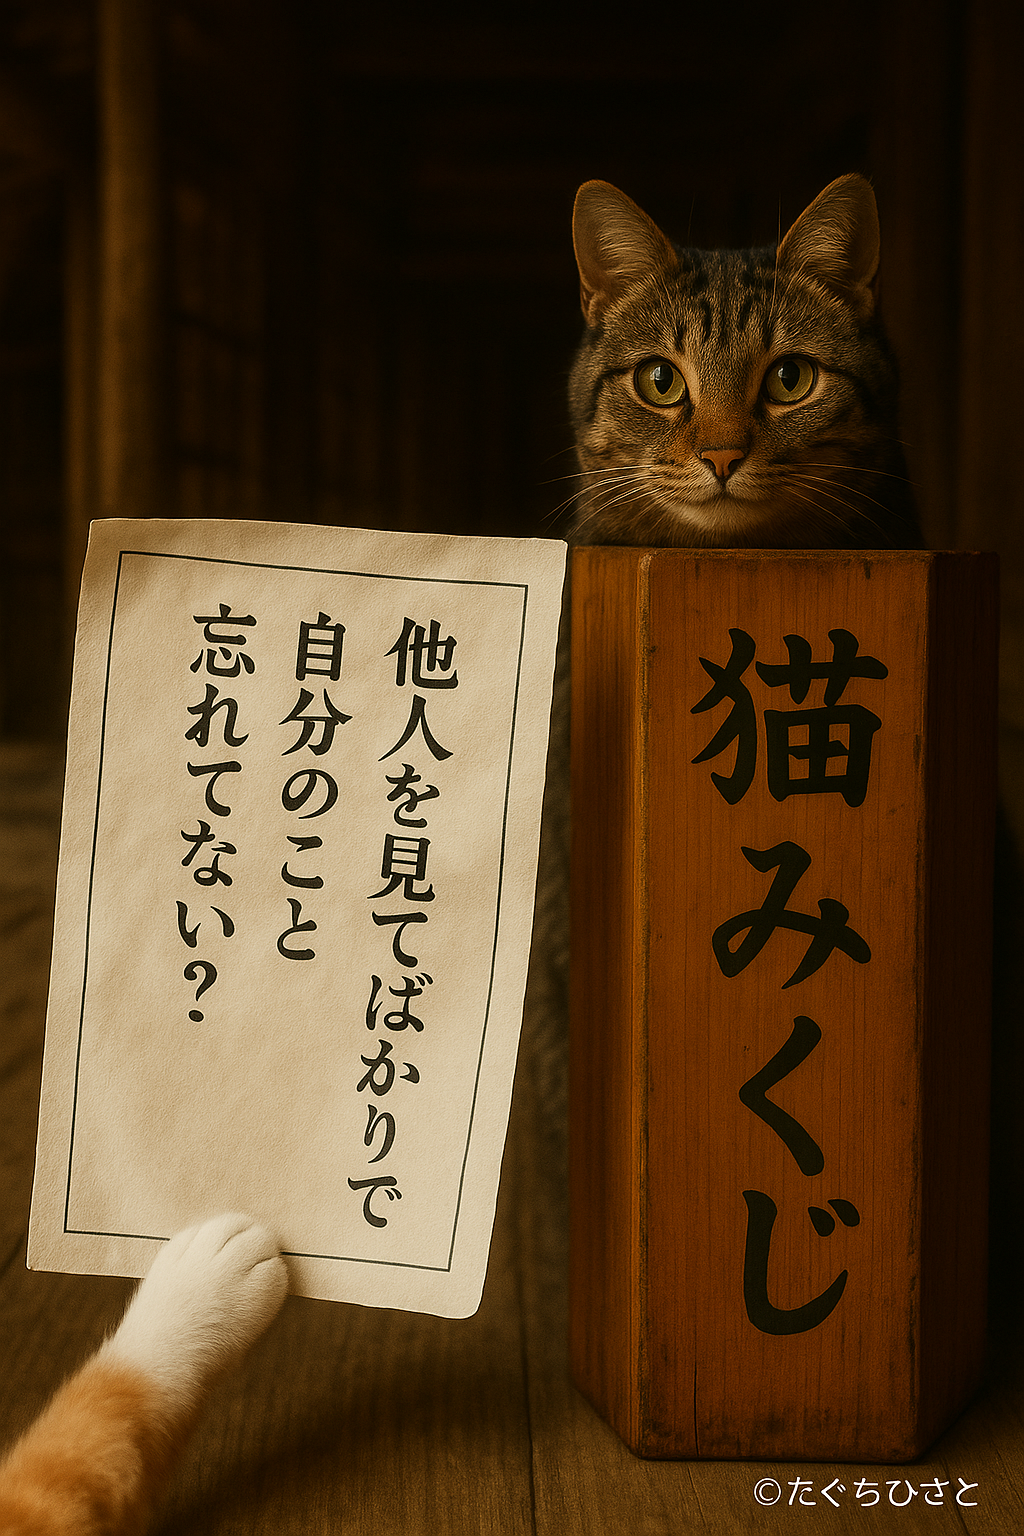 他人を見てばかりで
自分のこと
忘れてない？
猫みくじ
©たぐちひさと